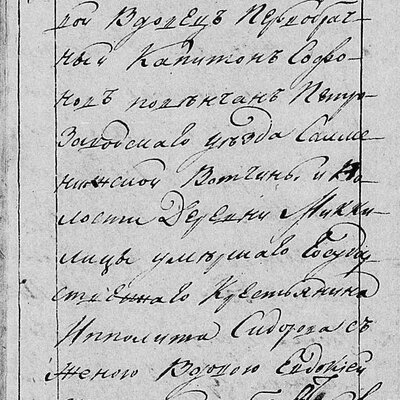 рой Вдовецъ первобрач-
ный Капитонъ Софо-
новъ повѣнчанъ Петро-
Заводскаго уѣзда Салме-
нижской Вотчины и Во-
лости Деревни Микки-
лицы умершаго Государ-
ственнаго Крестьянина
Ипполита Сидорова съ
женою Вдовою Евдокіей